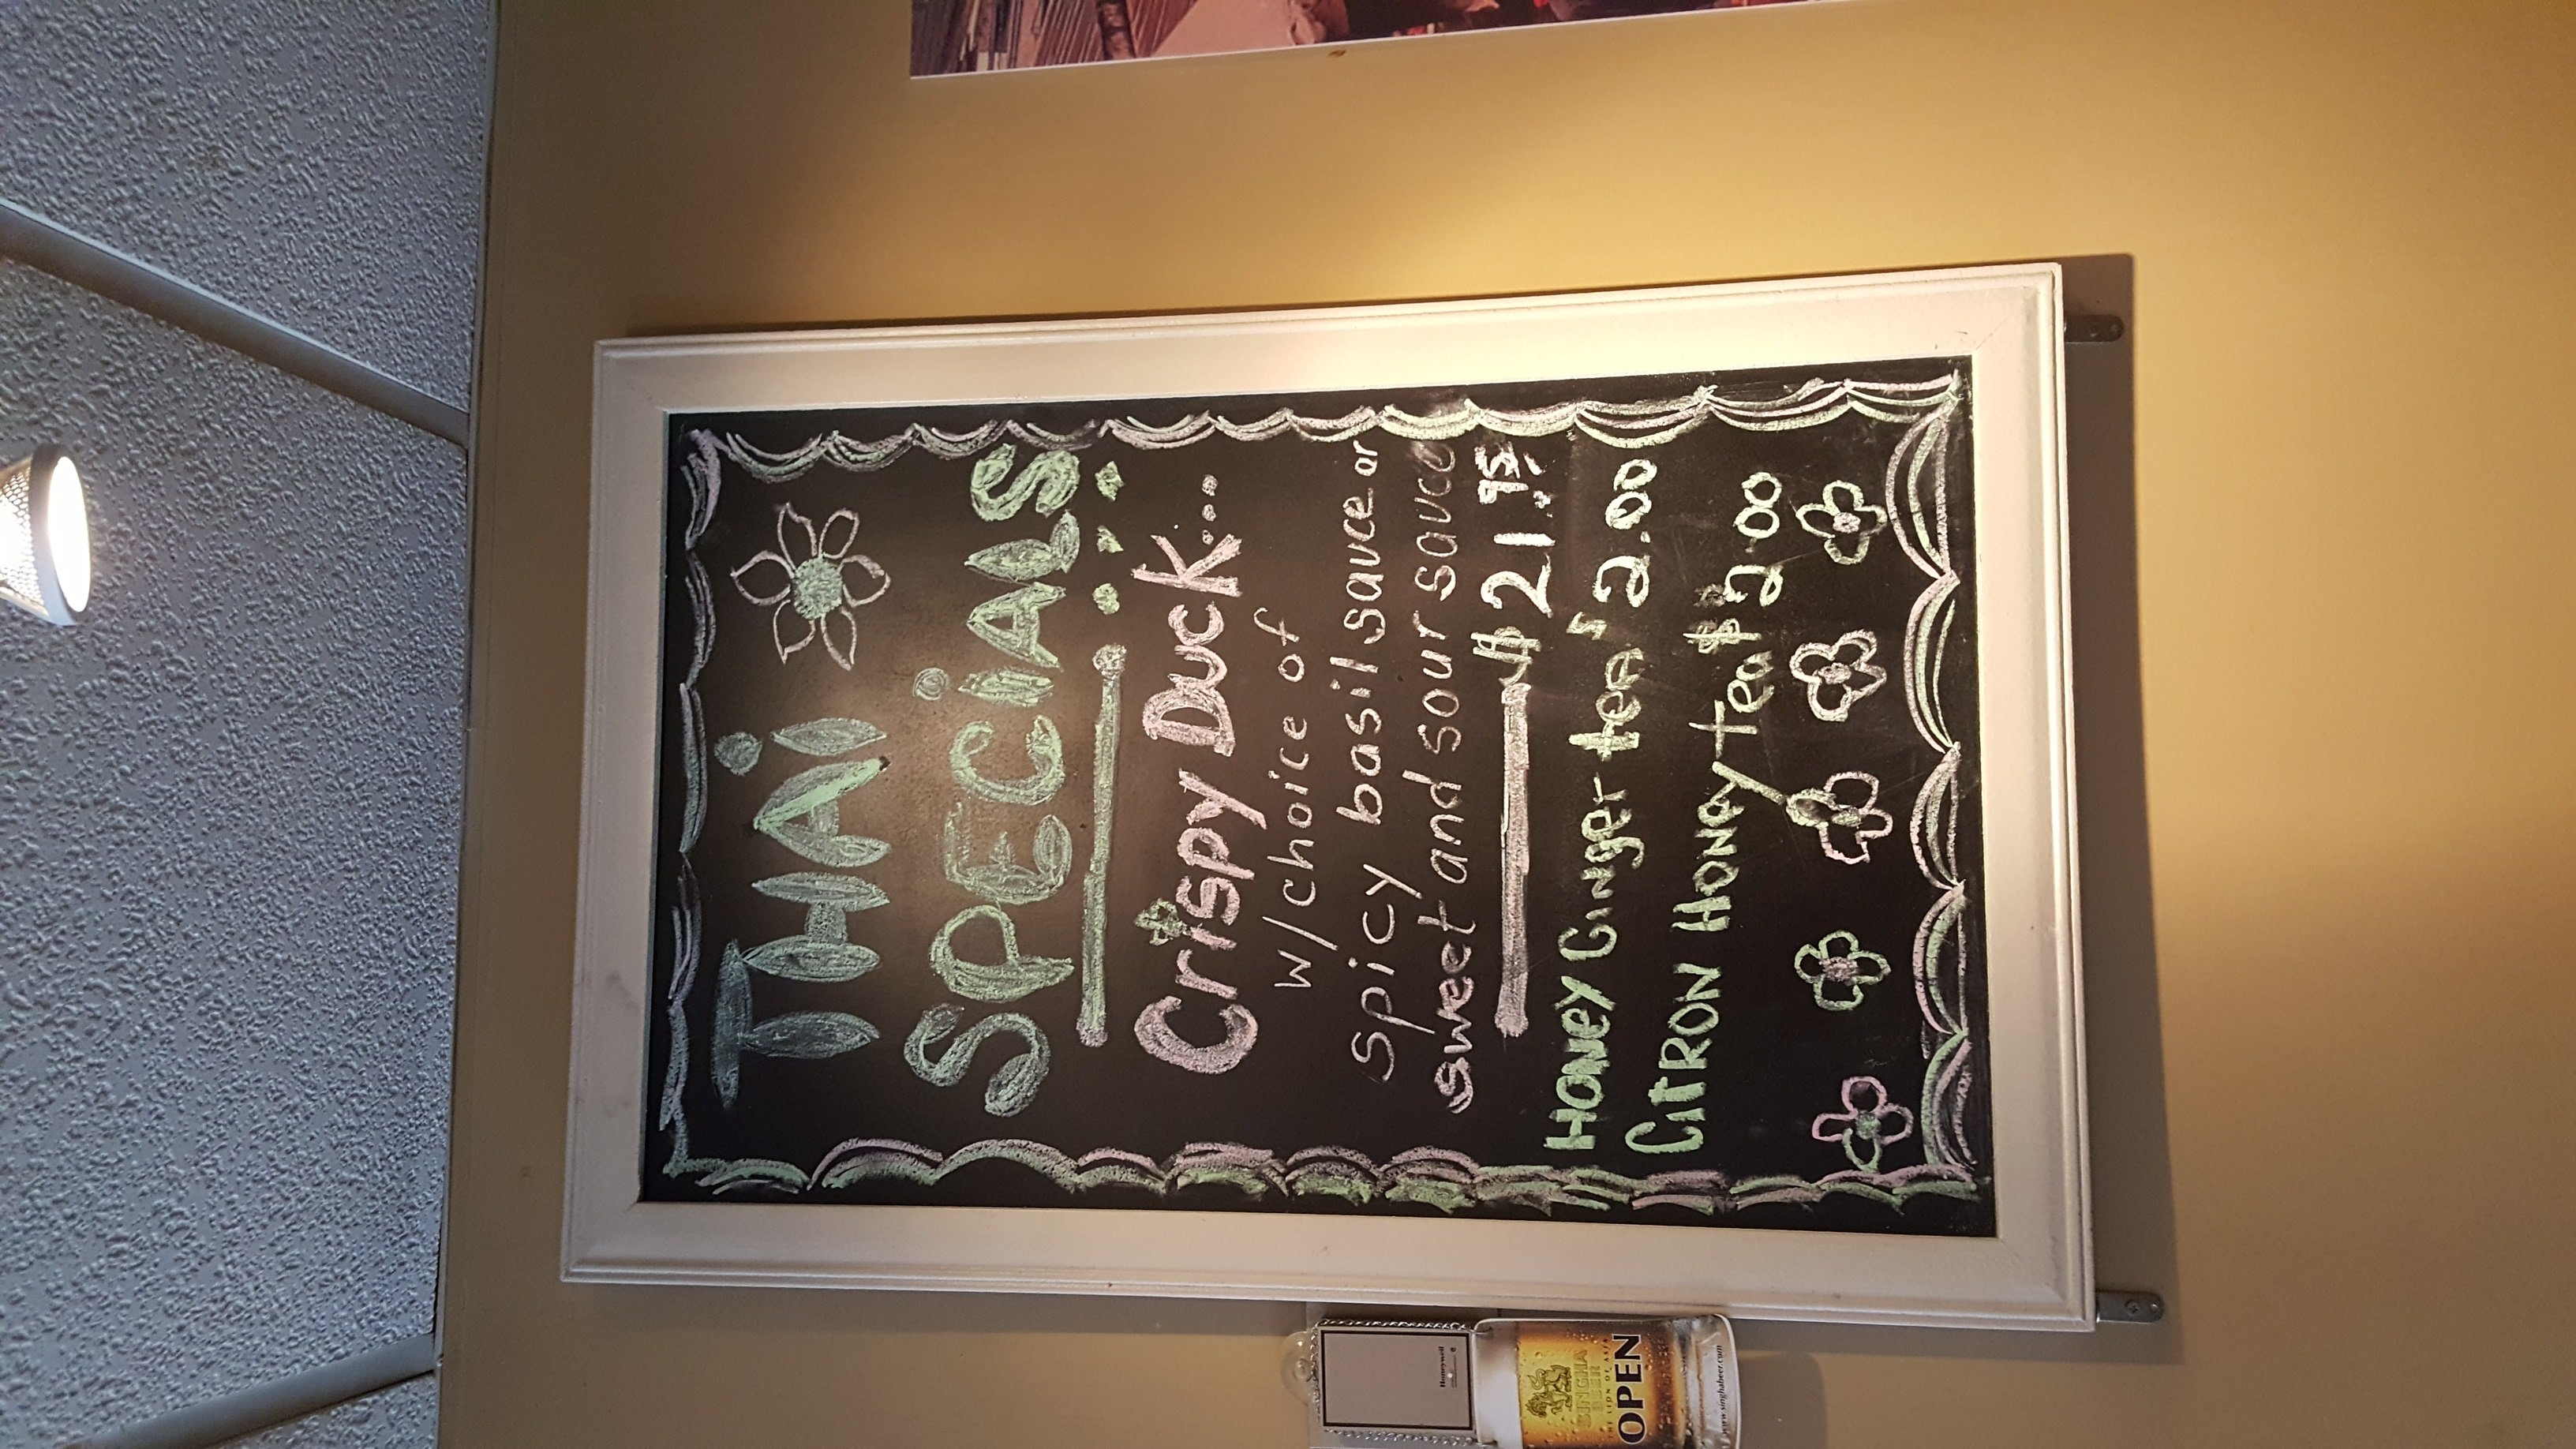 THAi
SPECiALS
Crispy Duck...
w/choice of
spicy basil sauce or
sweet and sour sauce
$21.95
HONEY GINger tea $2.00
CitRON HONEy tea $2.00
Honeywell
SINGHA
BEER
THE LION OF ASIA
OPEN
www.singhabeer.com